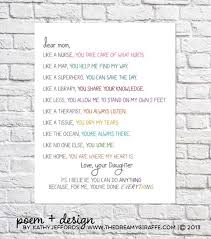 dear mom,
LIKE A NURSE, YOU TAKE CARE OF WHAT HURTS.
LIKE A MAP, YOU HELP ME FIND MY WAY.
LIKE A SUPERHERO, YOU CAN SAVE THE DAY.
LIKE A LIBRARY, YOU SHARE YOUR KNOWLEDGE.
LIKE LEGS, YOU ALLOW ME TO STAND ON MY OWN 2 FEET.
LIKE A THERAPIST, YOU ALWAYS LISTEN.
LIKE A TISSUE, YOU DRY MY TEARS.
LIKE THE OCEAN, YOU'RE ALWAYS THERE.
LIKE NO ONE ELSE, YOU LOVE ME.
LIKE HOME, YOU ARE WHERE MY HEART IS.
Love, your Daughter
P.S. I BELIEVE YOU CAN DO ANYTHING
BECAUSE, FOR ME, YOU'VE DONE EVERYTHING.
poem + design
BY KATHY JEFFORDS © WWW.THEDREAMYGIRAFFE.COM © 2013